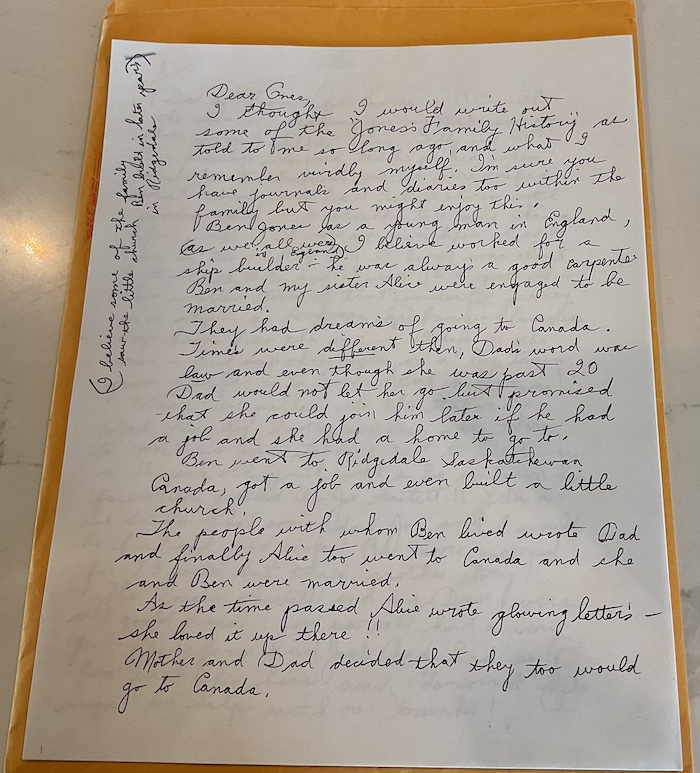 Dear Ones,
I thought I would write out
some of the "Jones's Family History" as
told to me so long ago, and what I
remember vividly myself. I'm sure you
have journals and diaries too within the
family but you might enjoy this.
Ben Jones as a young man in England,
(as we all were in England) I believe worked for a
ship builder – he was always a good carpenter
Ben and my sister Alice were engaged to be
married.
They had dreams of going to Canada.
Times were different then, Dad's word was
law and even though she was past 20
Dad would not let her go but promised
that she could join him later if he had
a job and she had a home to go to.
Ben went to Ridgedale Saskatchewan
Canada, got a job and even built a little
church.
The people with whom Ben lived wrote Dad
and finally Alice too went to Canada and she
and Ben were married.
As the time passed Alice wrote glowing letters –
she loved it up there!!
Mother and Dad decided that they too would
go to Canada.
(I believe some of the family
saw the little church Ben built in later years)
in Ridgedale